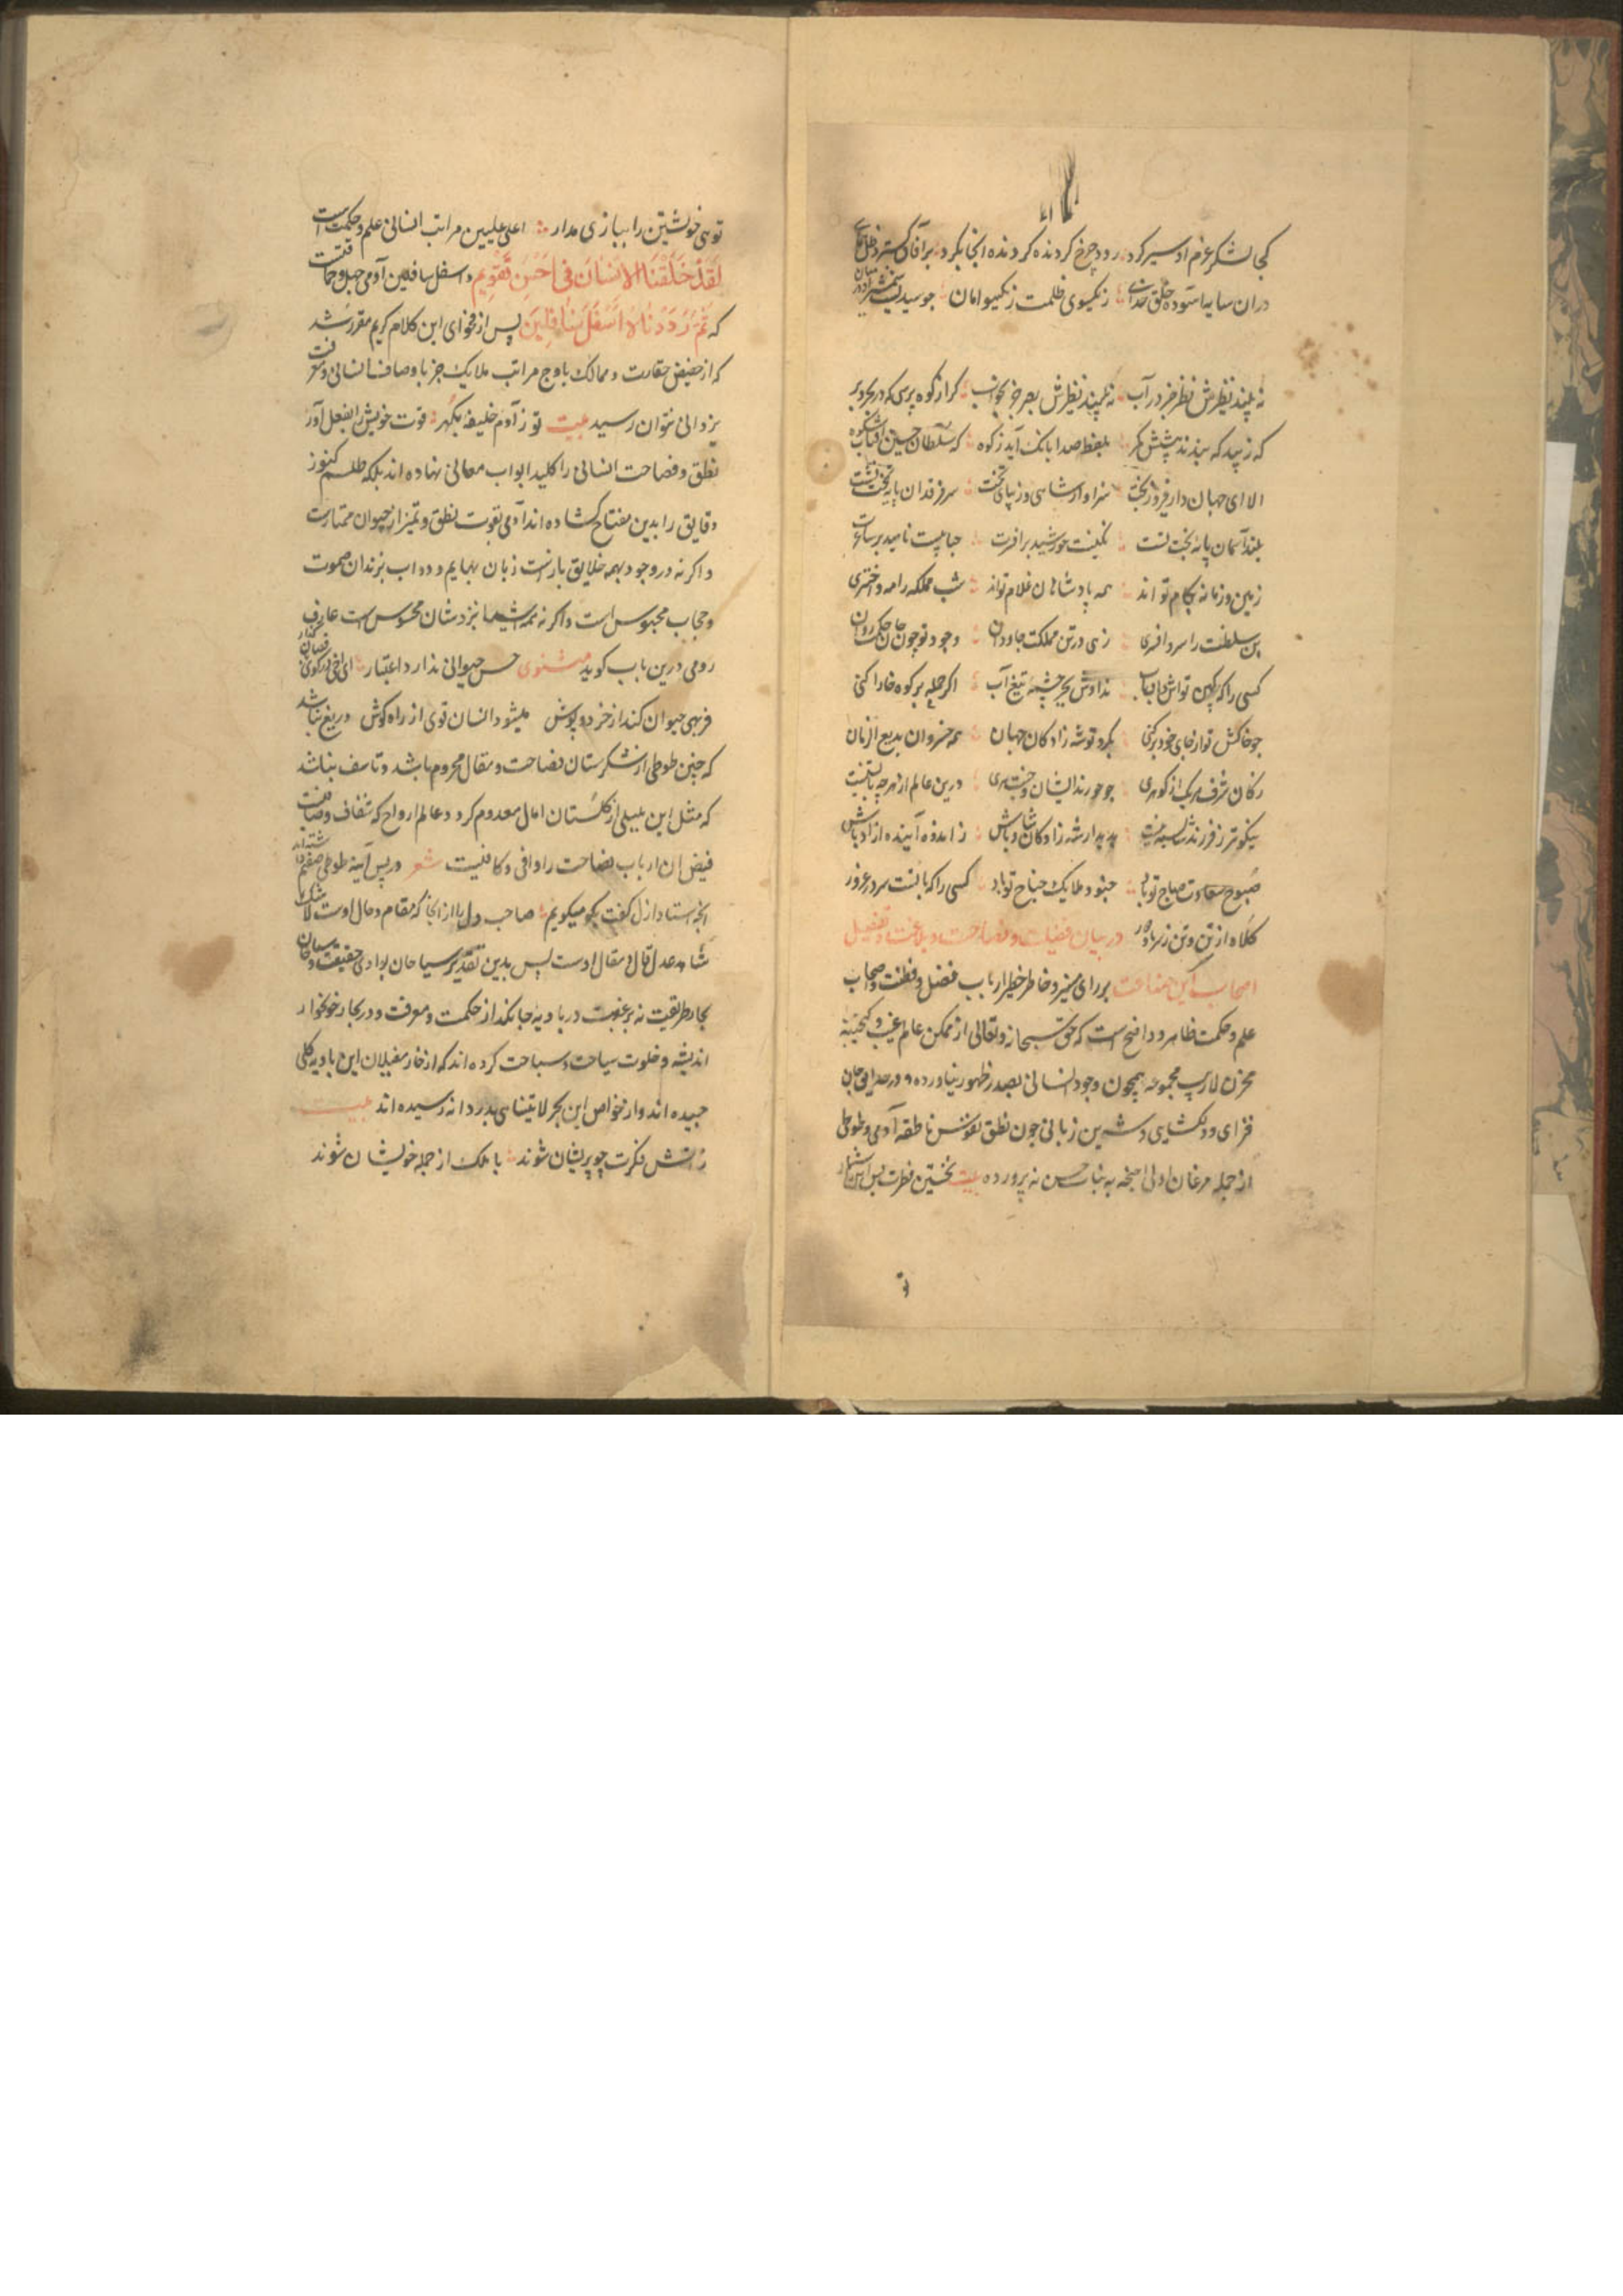 کجا لشکر عزم او سیر کرد رود چرخ کردنده کردنده انجا بکرد بر آفاق کسترد ظل
دران سایه اسوده خلق خدای ز یکسوی ظلمت ز یکسو امان جو
نه بیند نظیرش نظر جز در آب نه بیند نظیرش بصر جز بخواب کر از کوه پرسی که در بحر و بر
که زیبد که بندند پیشش کمر بلفظ صدا بانک آید ز کوه که سلطان حسین
الا ای جهان دار فیروز بخت سزاوار شاهی و زیبای تخت سر فرقدان پایه تخت تست
بلند آسمان پایه تخت تست نکینت خورشید بر افسرت
زمین و زمانه بکام تو اند همه پادشاهان غلام تواند شب مملکه را مه و اختری
سلطنت را سر و افسری زهی در تن مملکت جاودان وجود تو چون جان حکمت روان
کسی را که کین تواش نداوش بجز چشمه تیغ آب اکر حمله بر کوه خارا کنی
جو خاکش توار جای خود بر کنی بکرد تو شه زادکان جهان همه خسروان بدیع الزمان
شرف هر یک از کوهری جو خورند ایشان درین عالم از هرچه
نیکوتر ز فرزند شایسته نیست بدیدار شه زادکان شاد باش ز امده آینده ازاد باش
صبوح سعادت صباح تو باد جنود ملایک جناح تو باد کسی را که با تست سر در غرور
کلاه از تن و تن ز سر باد دور در بیان فضیلت و فصاحت و بلاغت و تفضیل
اصحاب این صناعت بر رای منیر و خاطر خطیر ارباب فضل و فطنت و اصحاب
علم و حکمت ظاهر و واضح است که حق سبحانه و تعالی از ممکن عالم غیب و کنجینه
مخزن لاریب مجموعه همچون وجود انسانی بصدر ظهور نیاورده و در حدایق جان
فزای و دلکشای و شیرین زبانی جون نطق نفوس ناطقه آدمی و طوطی
از جمله مرغان اولی اجنحه به بنات حسن نه پرورده بیت نخستین فطرت پسین شمار
تو
توی خویشتن را ببازی مدار اعلی علیین مراتب انسانی علم و حکمت است
لَقَدْ خَلَقْنَا الْاِنْسَانَ فِی اَحْسَنِ تَقْوِیمٍ و اسفل سافلین آدمی جهل و حماقتست
که ثُمَّ رَدَدْنَاهُ اَسْفَلَ سَافِلِینَ پس از فحوای این کلام کریم مقرر شد
که از حضیض حقارت و ممالک باوج مراتب ملایک جز باوصاف انسانی و معرفت
یزدانی نتوان رسید بیت تو ز آدم خلیفه بکهر قوت خویش را بفعل آور
نطق و فصاحت انسانی را کلید ابواب معانی نهاده اند بلکه طلسم کنوز
دقایق را بدین مفتاح کشاده اند آدمی بقوت نطق و تمیز از حیوان ممتازست
و اکر نه در وجود بهمه خلایق بازست زبان بهایم و دواب بزندان صموت
و حجاب محبوس است و اکر نه همه اشیا نزدشان محسوس است عارف
رومی درین باب کوید مثنوی حس حیوانی ندارد اعتبار ای اخی در کوی قصابان کذار
فربهی حیوان کند از خرد و پوش میشود انسان قوی از راه کوش دریغ نباشد
که چنین طوطی از شکرستان فصاحت و مقال محروم باشد و تاسف نباشد
که مثل این بلبلی از کلستان امال معدوم کردد عالم ارواح که شفاف و صافیست
فیض ان ارباب فصاحت را وافی و کافیست شعر در پس آینه طوطی صفتم داشته اند
انچه استاد ازل کفت بکو میکویم صاحب دل را از انجا که مقام و حال اوست لاشک
شاهد عدل قال و مقال اوست پس بدین تقدیر سیاحان بوادی حقیقت و سباحان
بحار طریقت نه بر غبت در بادیه جانکداز حکمت و معرفت و در بحار خونخوار
اندیشه و خلوت سیاحت و سباحت کرده اند که از خار مغیلان این بادیه کلی
جیده اند و از غواص این بحر لا یتناهی بدر دانه رسیده اند بیت
ز اتش فکرت چو پریشان شوند با ملک از جمله خویشان شوند